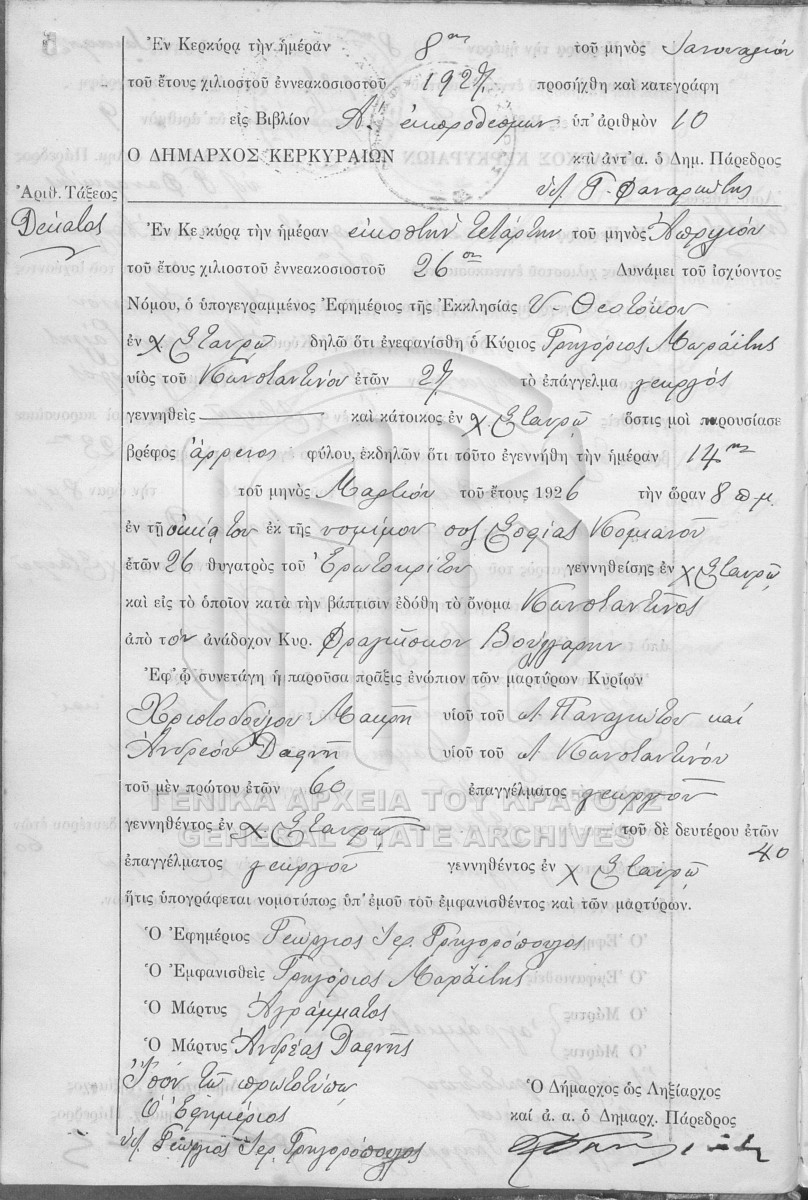 Ἐν Κερκύρᾳ τὴν ἡμέραν 8ην τοῦ μηνὸς Ἰανουαρίου
τοῦ ἔτους χιλιοστοῦ ἐννεακοσιοστοῦ 1927 προσήχθη καὶ κατεγράφη
εἰς Βιβλίον Α' ἐκπροθέσμων ὑπ' ἀριθμὸν 10
Ο ΔΗΜΑΡΧΟΣ ΚΕΡΚΥΡΑΙΩΝ καὶ ἀντ' α. ὁ Δημ. Πάρεδρος
Γ. Φαναριώτης
Ἀριθ. Τάξεως
Δέκατος
Ἐν Κερκύρᾳ τὴν ἡμέραν εἰκοστὴν τετάρτην τοῦ μηνὸς Ἀπριλίου
τοῦ ἔτους χιλιοστοῦ ἐννεακοσιοστοῦ 26ου Δυνάμει τοῦ ἰσχύοντος
Νόμου, ὁ ὑπογεγραμμένος Ἐφημέριος τῆς Ἐκκλησίας Υ. Θεοτόκου
ἐν χ Σταυρῷ δηλῶ ὅτι ἐνεφανίσθη ὁ Κύριος Γρηγόριος Μωραΐτης
υἱὸς τοῦ Κωνσταντίνου ἐτῶν 27 τὸ ἐπάγγελμα γεωργός
γεννηθεὶς καὶ κάτοικος ἐν χ Σταυρῷ ὅστις μοὶ παρουσίασε
βρέφος ἄρρενος φύλου, ἐκδηλῶν ὅτι τοῦτο ἐγεννήθη τὴν ἡμέραν 14ην
τοῦ μηνὸς Μαρτίου τοῦ ἔτους 1926 τὴν ὥραν 8 π.μ.
ἐν τῇ οἰκίᾳ του ἐκ τῆς νομίμου συζ Σοφίας Κομιανοῦ
ἐτῶν 26 θυγατρὸς τοῦ Ἐρωτοκρίτου γεννηθείσης ἐν χ Σταυρῷ
καὶ εἰς τὸ ὁποῖον κατὰ τὴν βάπτισιν ἐδόθη τὸ ὄνομα Κωνσταντῖνος
ἀπὸ τὸν ἀνάδοχον Κυρ. Φραγκίσκον Βούλγαρην
Ἐφ' ᾧ συνετάγη ἡ παροῦσα πρᾶξις ἐνώπιον τῶν μαρτύρων Κυρίων
Χριστοδούλου Μακρῆ υἱοῦ τοῦ Παναγιώτου καὶ
Ἀνδρέου Δαφνῆ υἱοῦ τοῦ Κωνσταντίνου
τοῦ μὲν πρώτου ἐτῶν 60 ἐπαγγέλματος γεωργοῦ
ΓΕΝΙΚΑ ΑΡΧΕΙΑ ΤΟΥ ΚΡΑΤΟΥΣ
γεννηθέντος ἐν χ Σταυρῷ τοῦ δὲ δευτέρου ἐτῶν 40
GENERAL STATE ARCHIVES
ἐπαγγέλματος γεωργοῦ γεννηθέντος ἐν χ Σταυρῷ
ἥτις ὑπογράφεται νομοτύπως ὑπ' ἐμοῦ τοῦ ἐμφανισθέντος καὶ τῶν μαρτύρων.
Ὁ Ἐφημέριος Γεώργιος Ἱερ. Γρηγορόπουλος
Ὁ Ἐμφανισθεὶς Γρηγόριος Μωραΐτης
Ὁ Μάρτυς Ἀγράμματος
Ὁ Μάρτυς Ἀνδρέας Δαφνῆς
Ἴσον τῷ πρωτοτύπῳ
Ὁ Ἐφημέριος
Γεώργιος Ἱερ. Γρηγορόπουλος
Ὁ Δήμαρχος ὡς Ληξίαρχος
καὶ ἀ. α. ὁ Δημαρχ. Πάρεδρος